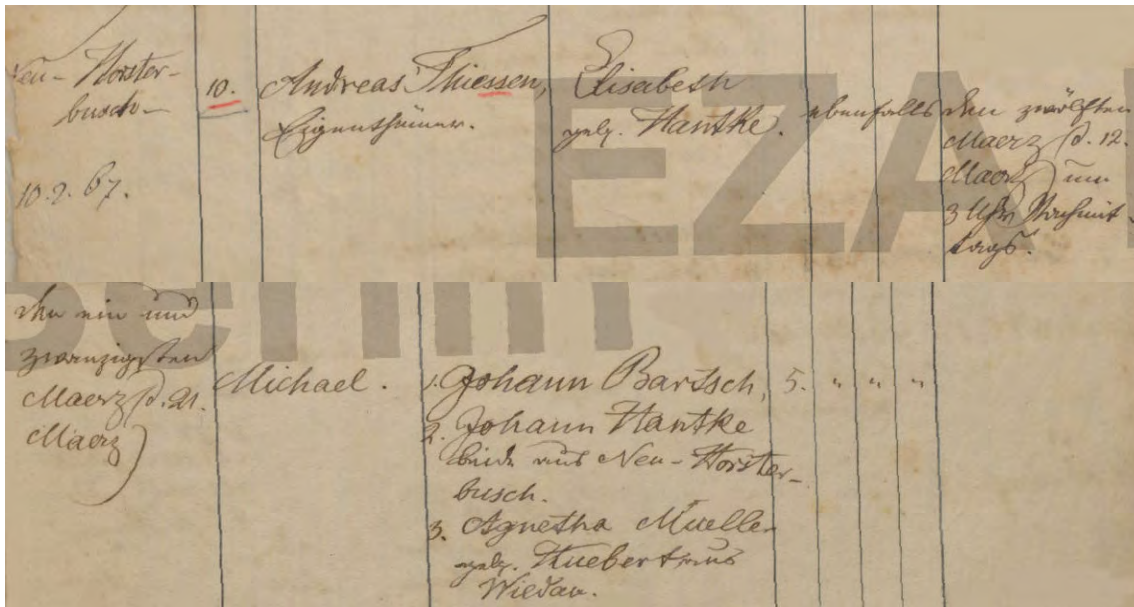 Neu-Horster-
busch
10.2.67.
10.
Andreas Thiessen,
Eigenthümer.
Elisabeth
geb. Hantke.
ebenfalls
den zwölften
Maerz (d. 12.
Maerz) um
3 Uhr Nachmit-
tags.
EZA
Berlin
den ein und
zwanzigsten
Maerz (d. 21.
Maerz)
Michael.
1. Johann Bartsch,
2. Johann Hantke
beide aus Neu-Horster-
busch.
3. Agnetha Mueller
geb. Huebert aus
Wiedau.
5. " " "